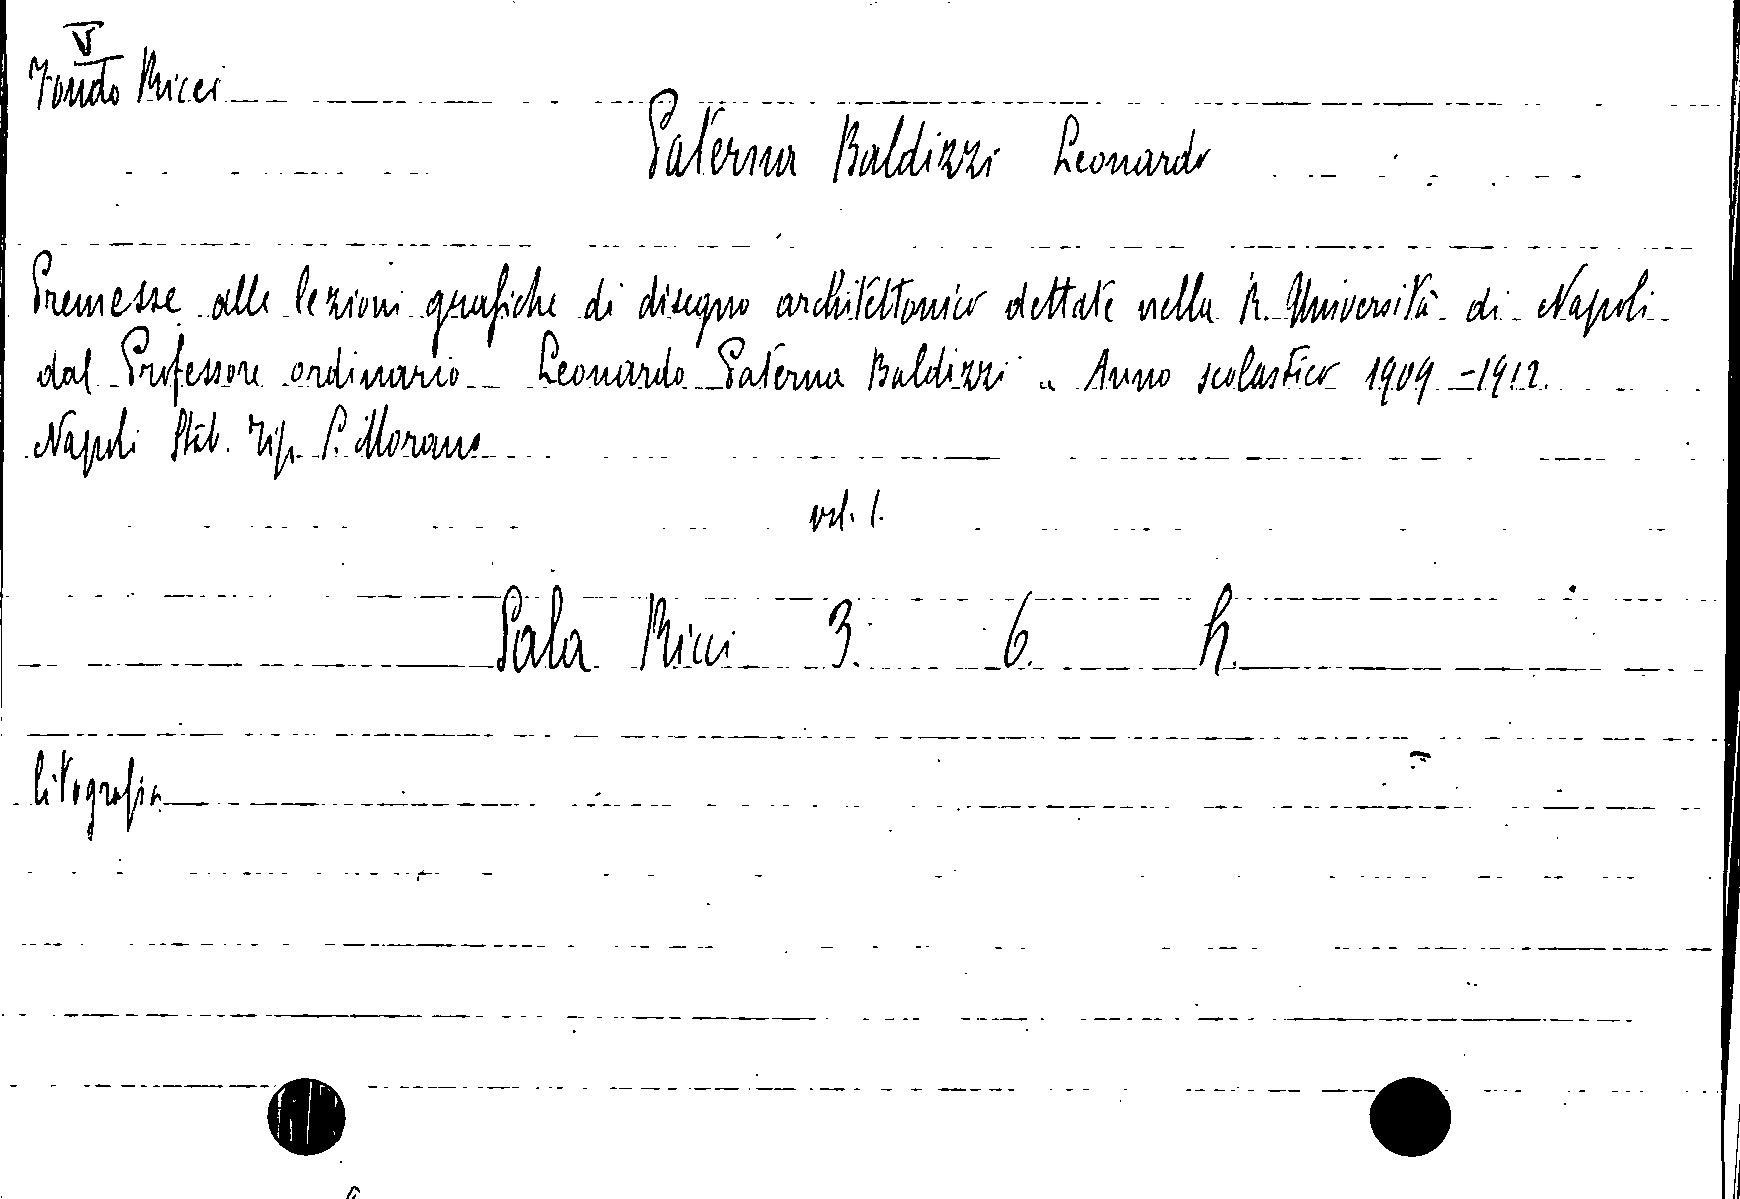 V
Fondo Ricci
Paterna Baldizzi Leonardo
Premesse alle lezioni grafiche di disegno architettonico dettate nella R. Università di Napoli
dal Professore ordinario Leonardo Paterna Baldizzi " Anno scolastico 1909 - 1912.
Napoli Stab. Tip. S. Morano
vol. 1.
Sala Ricci 3. 6. h.
litografia